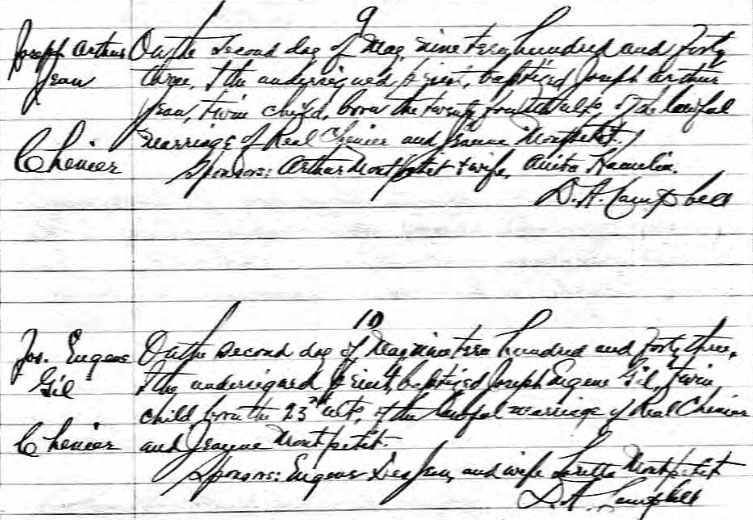 9
Joseph Arthur On the second day of May nineteen hundred and forty
Jean three, I the undersigned priest, baptized Joseph Arthur
Jean, twin child, born the twenty fourth ulto, of the lawful
marriage of Real Chenier and Jeanne Montpetit.
Chenier Sponsors: Arthur Montpetit & wife, Anita Hamelin.
D. A. Campbell
10
Jos. Eugene On the second day of May nineteen hundred and forty three,
Gil I the undersigned priest, baptized Joseph Eugene Gil, twin
child born the 23rd ulto, of the lawful marriage of Real Chenier
Chenier and Jeanne Montpetit.
Sponsors: Eugene and wife Loretta Montpetit
D. A. Campbell